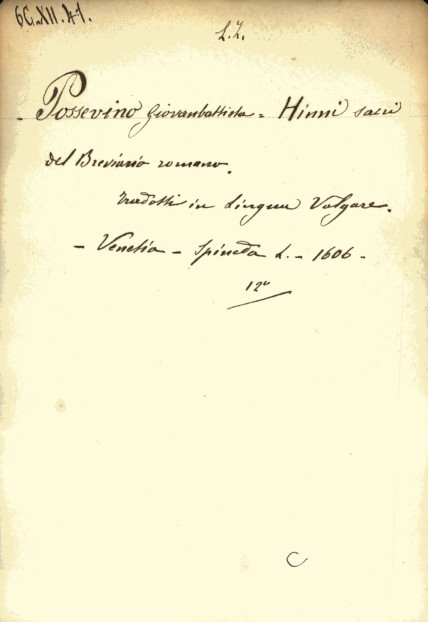 6C.XII.41.
L.Z.
Possevino Giovanbattista = Hinni sacri
del Breviario romano.
tradotti in Lingua Volgare.
- Venetia - Spineda L. - 1606 -
12º
C